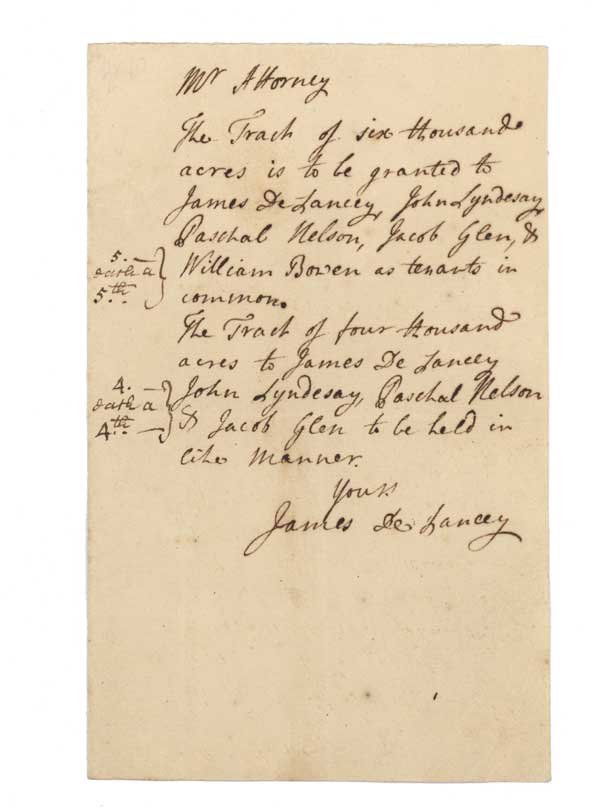 Mr Attorney
The Tract of six thousand
acres is to be granted to
James De Lancey, John Lyndesay,
Paschal Nelson, Jacob Glen, &
William Bowen as tenants in
common.
5.
each a
5th
The Tract of four thousand
acres to James De Lancey
John Lyndesay, Paschal Nelson
& Jacob Glen to be held in
like manner.
4.
each a
4th
Yours
James De Lancey